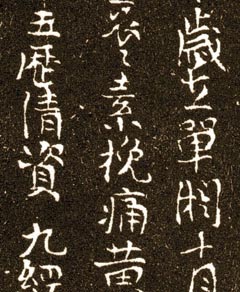 歲在單閼十月
哀々素挽痛黄
五歷清資 九經